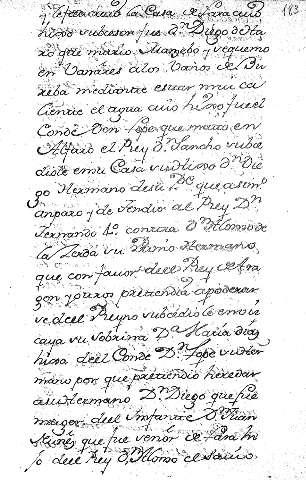 183
y la Casa de Lara cuio
hijo subcesor fue Dn. Diego de Ha
ro que murio Mancebo y pequeño
en Vanares a los Vaños de Bu
reba mediante estar mui ca
liente el agua cuio hijo fue el
Conde Don Lope que mató en
Alfaro el Rey Dn. Sancho subce
diole en su Casa su hijo Dn. Die
go Hermano de su Pe. que
anparo y defendio al Rey Dn.
Fernando 4o. contra Dn. Alonso de
la Zerda su Primo Hermano,
que con favor del Rey de Ara
gon y otros pretendia apoderar
se del Reyno subcediole en
su Sobrina Da. Maria Diaz
hija del Conde Dn. Lope su Her
mano por que pretendio heredar
a su Hermano Dn. Diego que fue
muger del Infante Dn. Juan
Nuñez que fue señor de Lara hi
jo del Rey Dn. Alonso el savio.